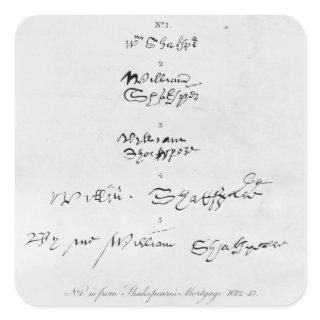 No. 1.
Wm Shakspē
2
William
Shakspere
3
William
Shakspere
4
Willm Shakspere
5
By me William Shakspeare
No. 1 is from Shakspeare's Mortgage 1612-13.